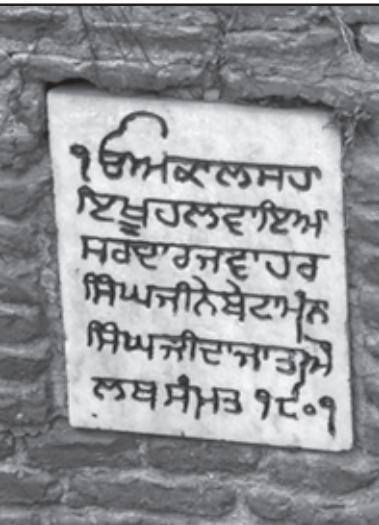 ੴ ਅਕਾਲ ਸਹਾ
ਇ ਖੂਹ ਲਵਾਇਆ
ਸਰਦਾਰ ਜਵਾਹਰ
ਸਿੰਘ ਜੀ ਨੇ ਬੇਟਾ ਮਾਨ
ਸਿੰਘ ਜੀ ਦਾ ਜਾਤ ਔ
ਲਖ ਸੰਮਤ ੧੮੦੧